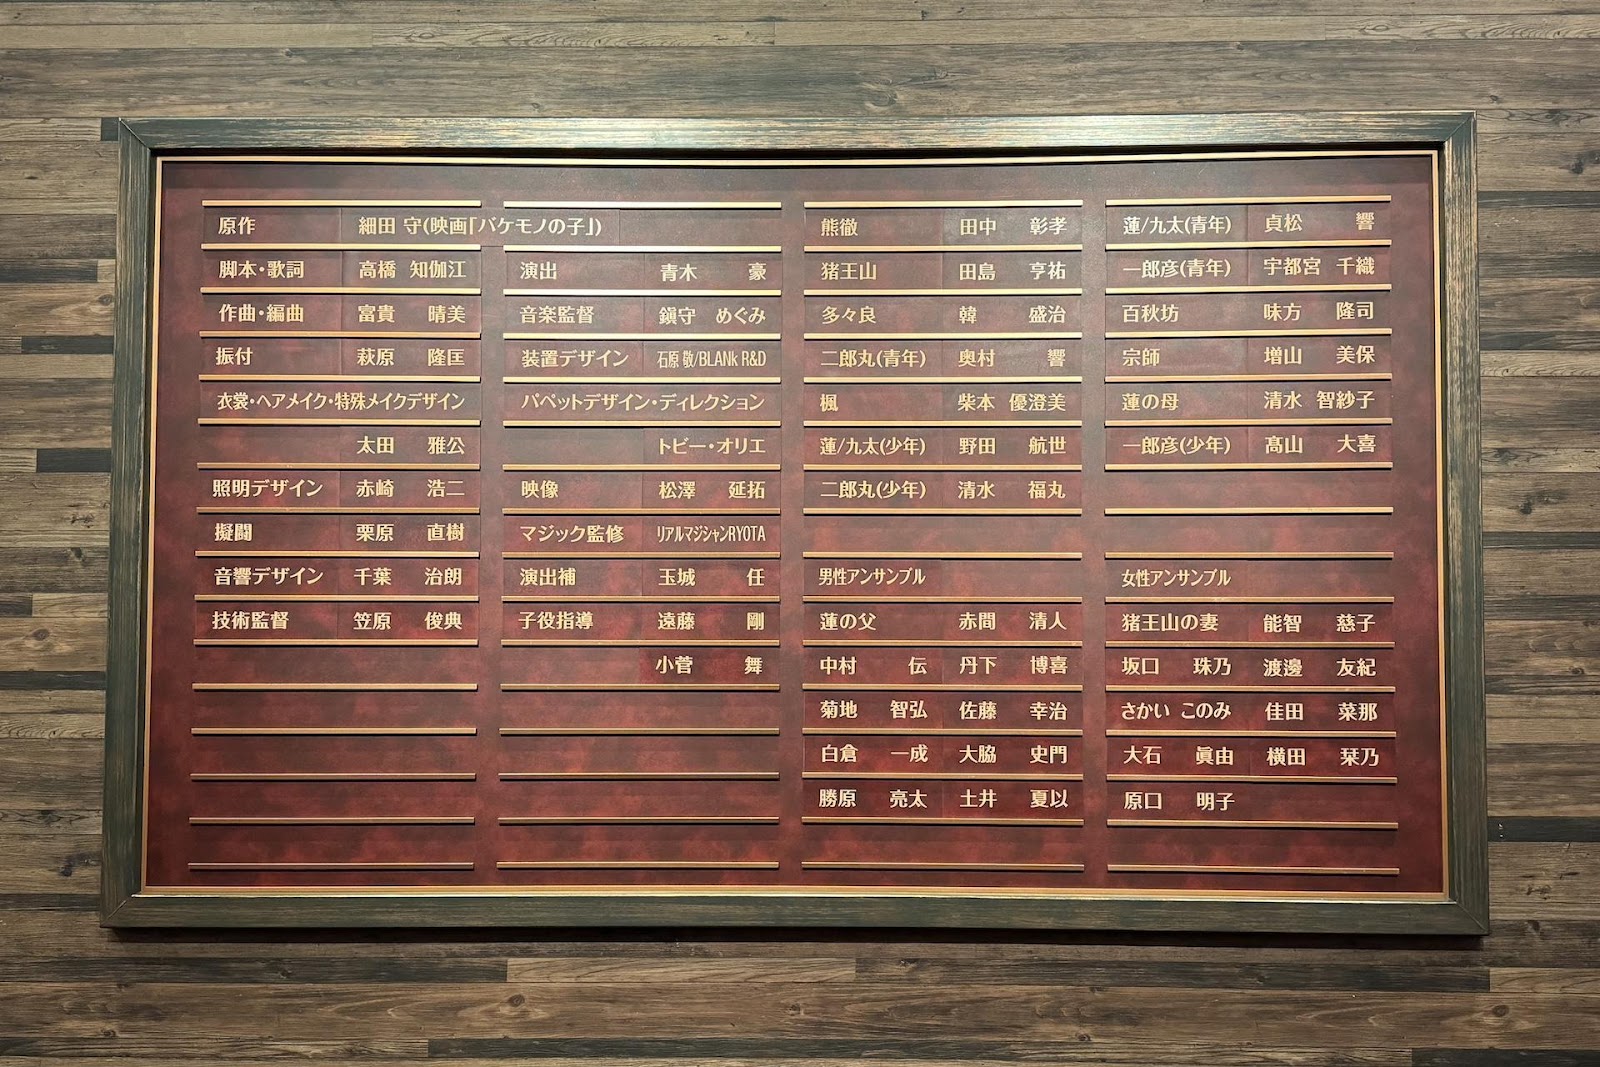 原作 細田 守(映画「バケモノの子」)
脚本・歌詞 高橋 知伽江
作曲・編曲 富貴 晴美
振付 萩原 隆匡
衣裳・ヘアメイク・特殊メイクデザイン
太田 雅公
照明デザイン 赤崎 浩二
擬闘 栗原 直樹
音響デザイン 千葉 治朗
技術監督 笠原 俊典
演出 青木 豪
音楽監督 鎭守 めぐみ
装置デザイン 石原 敬/BLANk R&D
パペットデザイン・ディレクション
トビー・オリエ
映像 松澤 延拓
マジック監修 リアルマジシャンRYOTA
演出補 玉城 任
子役指導 遠藤 剛
小菅 舞
熊徹 田中 彰孝
猪王山 田島 亨祐
多々良 韓 盛治
二郎丸(青年) 奥村 響
楓 柴本 優澄美
蓮/九太(少年) 野田 航世
二郎丸(少年) 清水 福丸
男性アンサンブル
蓮の父 赤間 清人
中村 伝 丹下 博喜
菊地 智弘 佐藤 幸治
白倉 一成 大脇 史門
勝原 亮太 土井 夏以
蓮/九太(青年) 貞松 響
一郎彦(青年) 宇都宮 千織
百秋坊 味方 隆司
宗師 増山 美保
蓮の母 清水 智紗子
一郎彦(少年) 髙山 大喜
女性アンサンブル
猪王山の妻 能智 慈子
坂口 珠乃 渡邊 友紀
さかい このみ 佳田 菜那
大石 眞由 横田 栞乃
原口 明子